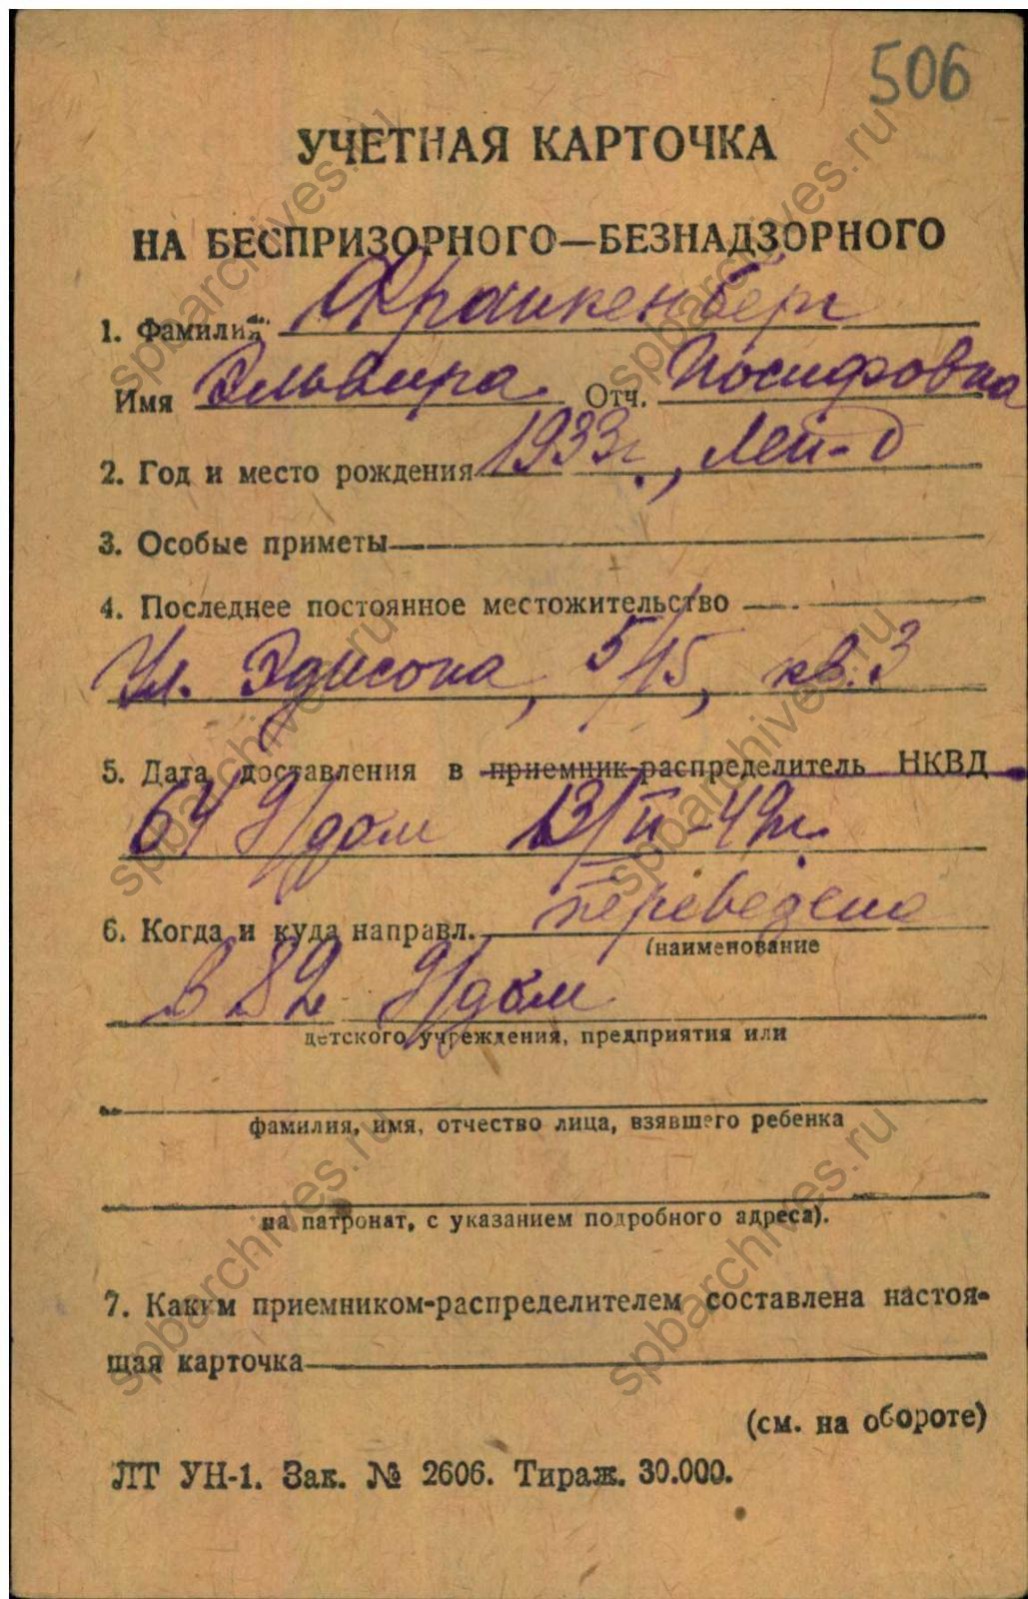 506
УЧЕТНАЯ КАРТОЧКА
НА БЕСПРИЗОРНОГО—БЕЗНАДЗОРНОГО
1. Фамилия Франкенберг
Имя Эльвира Отч. Иосифовна
2. Год и место рождения 1933г., Лен-д
3. Особые приметы
4. Последнее постоянное местожительство
Ул. Эдисона, 5/15, кв. 3
5. Дата доставления в приемник-распределитель НКВД
64 д/дом 13/II-42г.
6. Когда и куда направл. переведена
(наименование
в 82 д/дом
детского учреждения, предприятия или
фамилия, имя, отчество лица, взявшего ребенка
на патронат, с указанием подробного адреса).
7. Каким приемником-распределителем составлена настоя-
щая карточка
(см. на обороте)
ЛТ УН-1. Зак. № 2606. Тираж. 30.000.
spbarchives.ru
spbarchives.ru
spbarchives.ru
spbarchives.ru
spbarchives.ru
spbarchives.ru